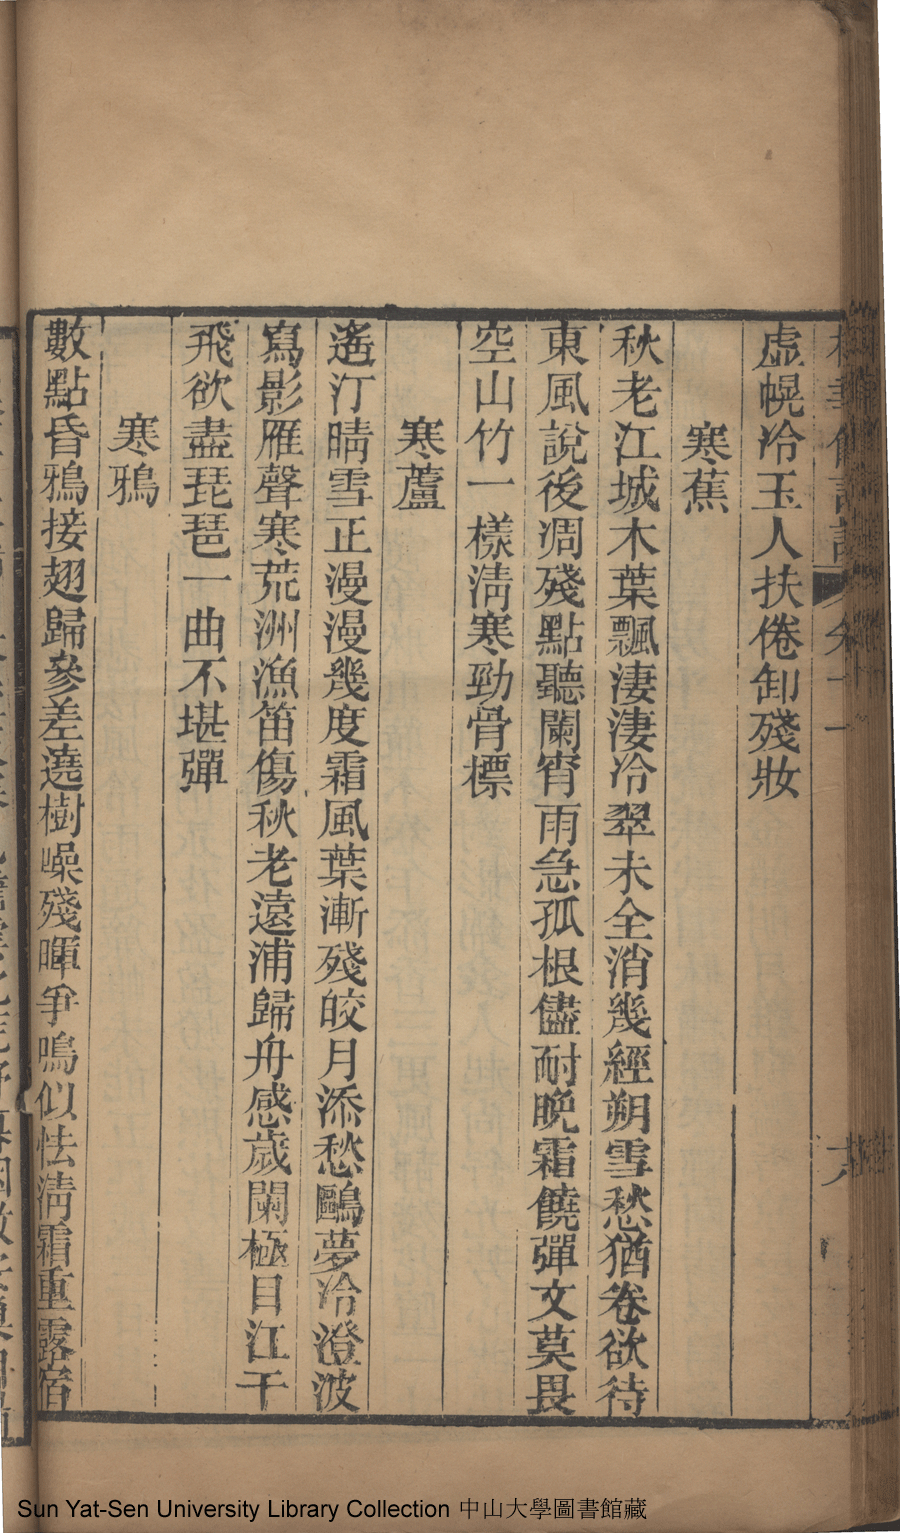 虛幌冷玉人扶倦卸殘妝
寒蕉
秋老江城木葉飄淒淒冷翠未全消幾經朔雪愁猶卷欲待
東風說後凋殘點聽闌宵雨急孤根儘耐晚霜饒彈文莫畏
空山竹一樣淸寒勁骨標
寒蘆
遙汀晴雪正漫漫幾度霜風葉漸殘皎月添愁鷗夢冷澄波
寫影雁聲寒荒洲漁笛傷秋老遠浦歸舟感歲闌極目江干
飛欲盡琵琶一曲不堪彈
寒鴉
數點昏鴉接翅歸參差遶樹噪殘暉爭鳴似怯淸霜重露宿
Sun Yat-Sen University Library Collection 中山大學圖書館藏